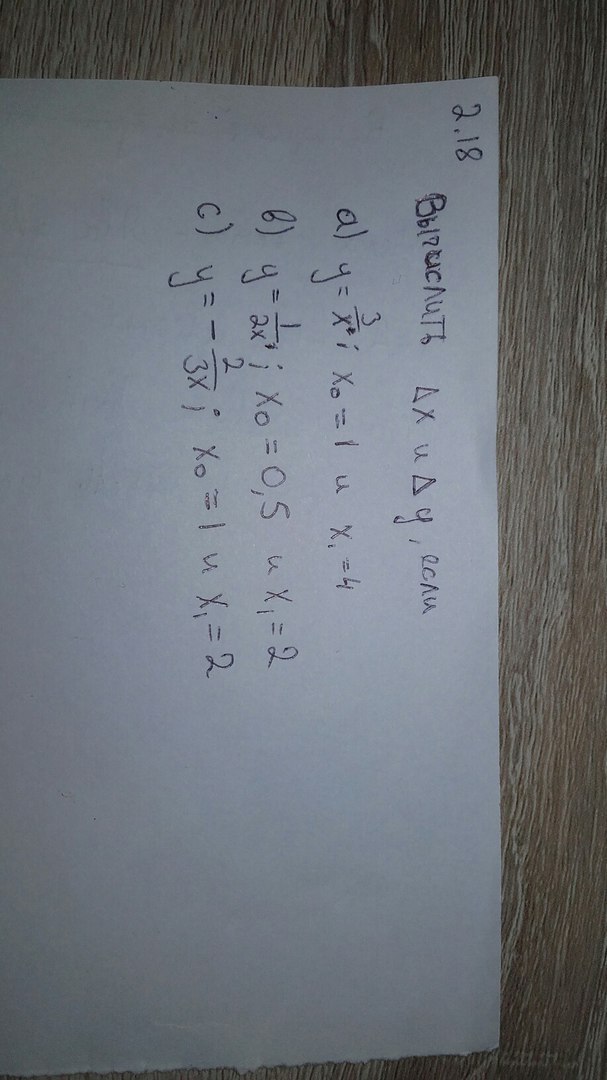 2.18 Вычислить Δx и Δy, если
a) y = 3/x²; x₀ = 1 и x₁ = 4
b) y = 1/2x²; x₀ = 0,5 и x₁ = 2
c) y = - 2/3x; x₀ = 1 и x₁ = 2